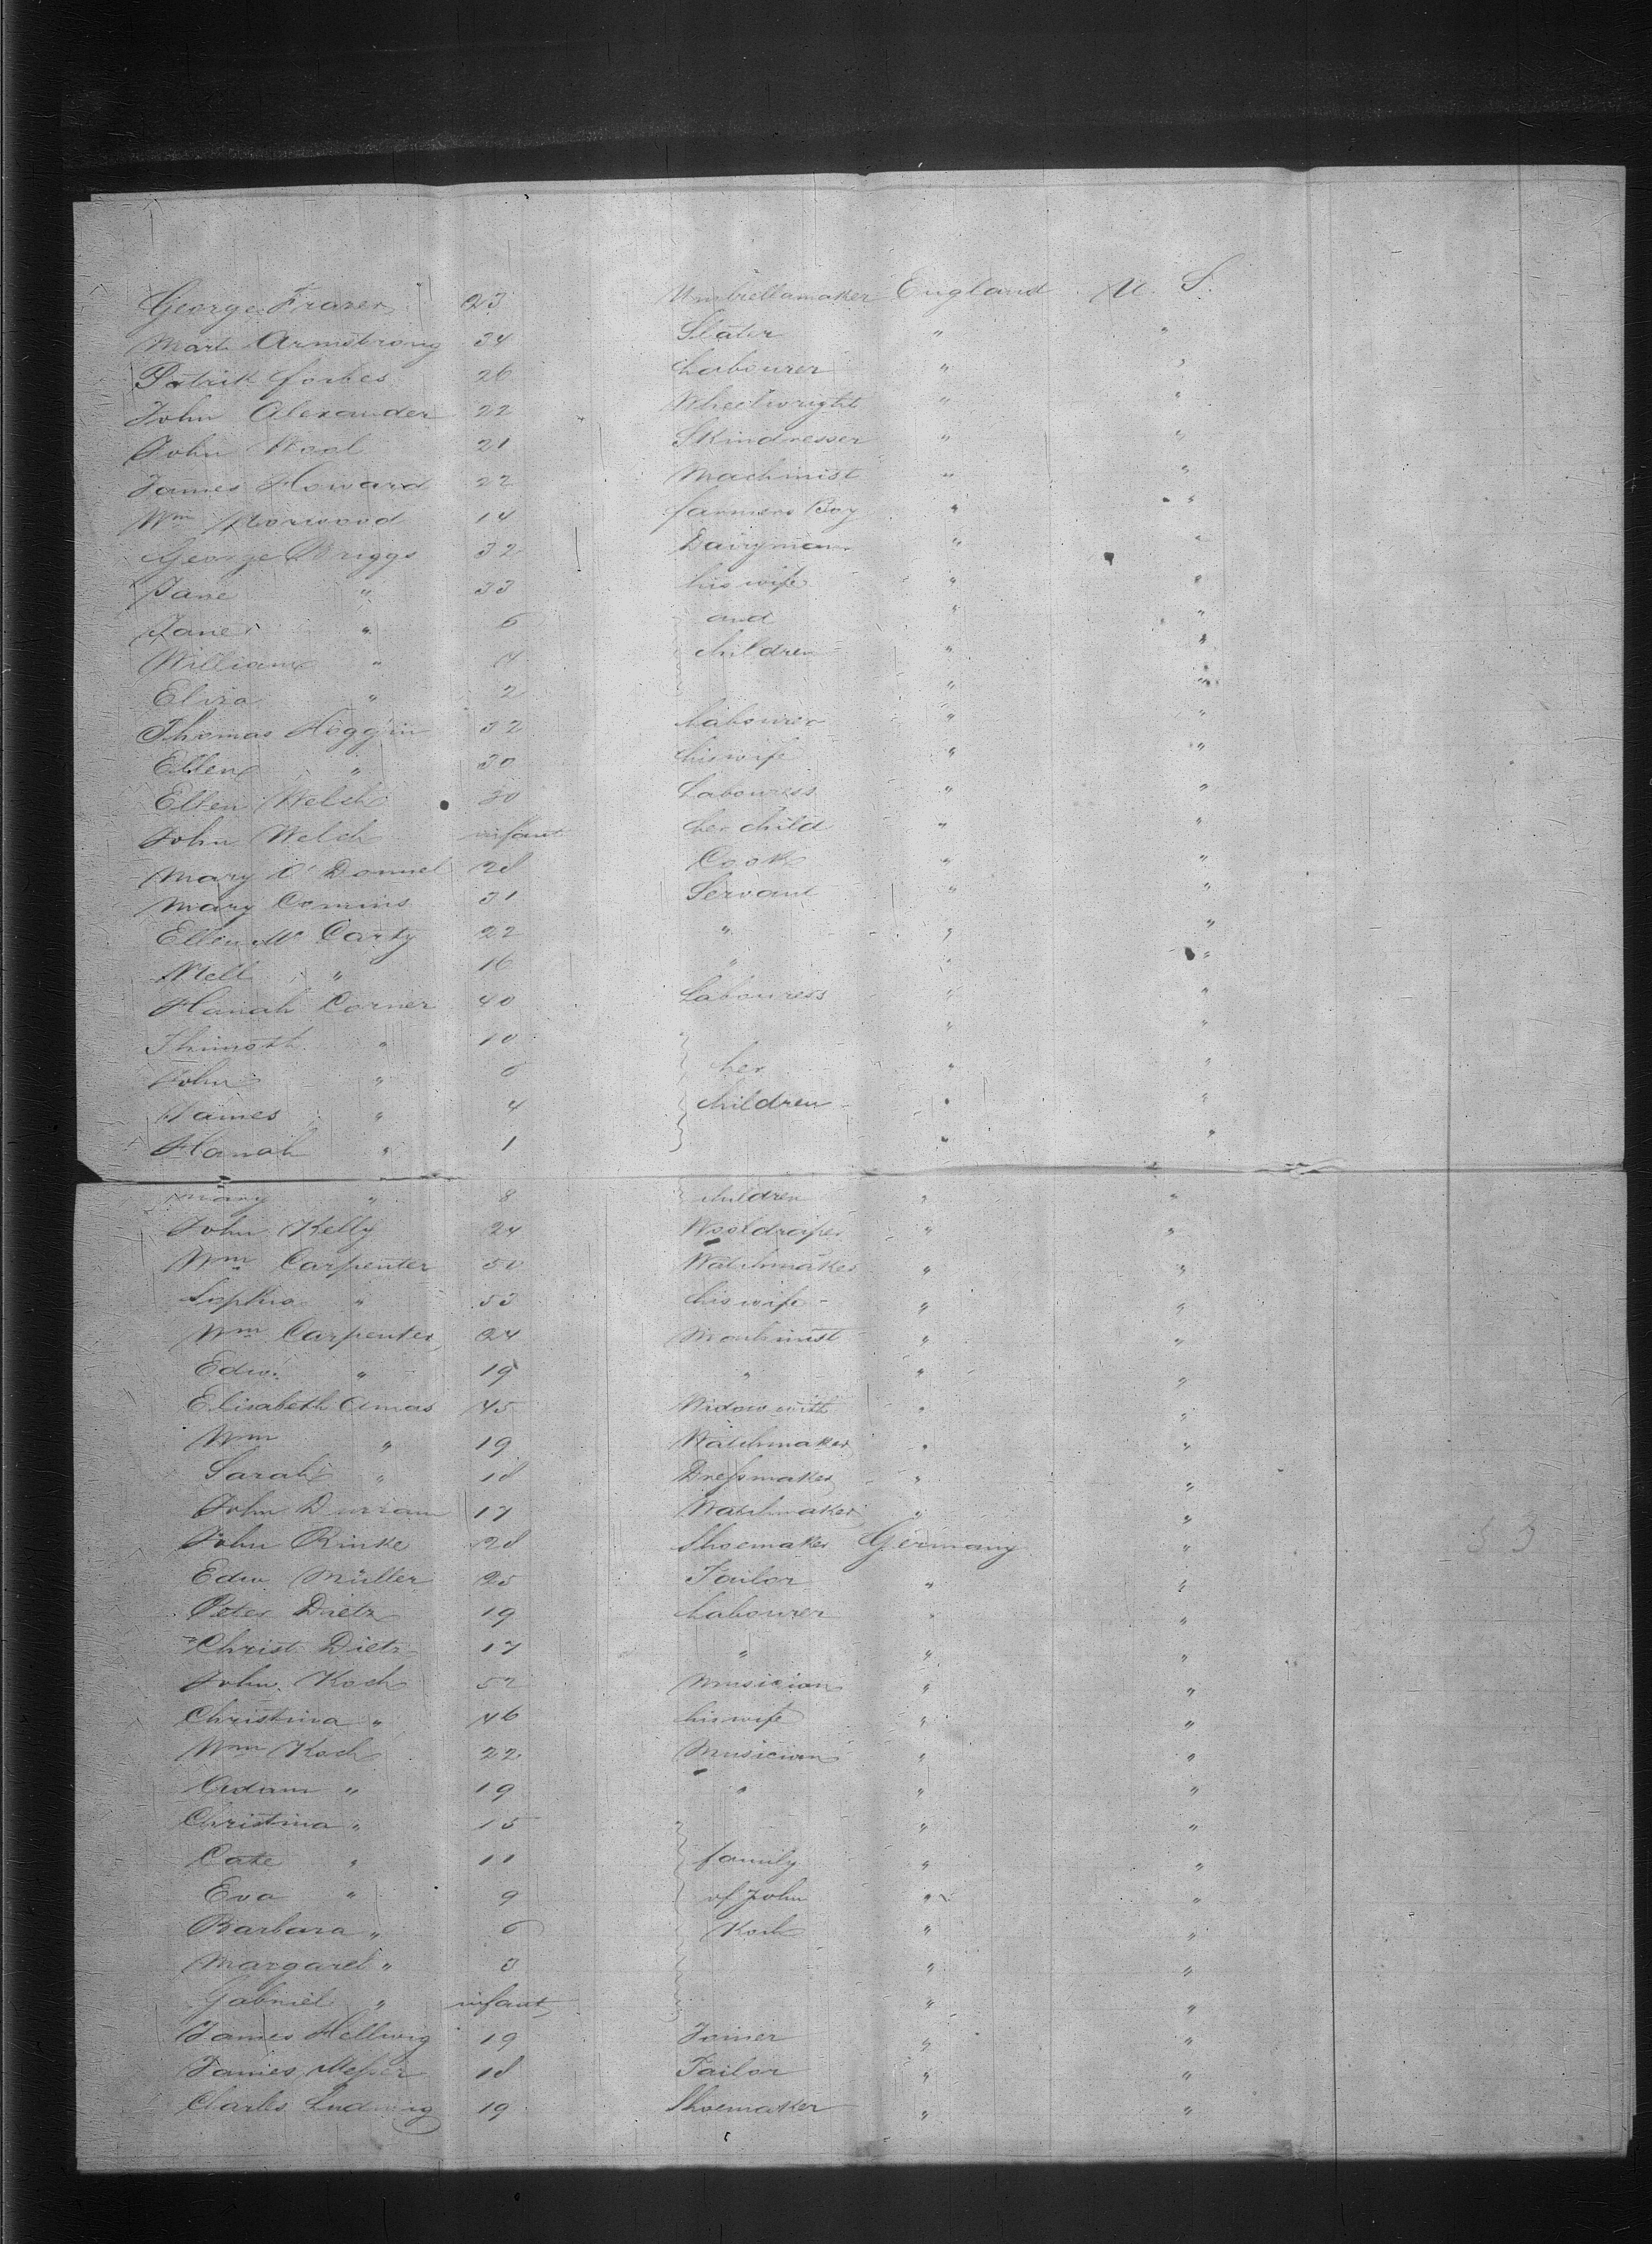 George Fraser 23 Umbrellamaker England U. S.
Mark Armstrong 34 Slater " "
Patrik Forbes 26 Labourer " "
John Alexander 22 Wheelwright " "
John 21 Skindresser " "
James Howard 22 Machinist " "
Wm Norwood 14 farmers Boy " "
George Briggs 32 Dairyman " "
Jane " 33 his wife " "
Jane " 6 and " "
William " 4 children " "
Eliza " 2 " "
Thomas Hoggin 32 Labourer " "
Ellen " 30 his wife " "
Ellen Welch 30 Labouress " "
John Welch infant her child " "
Mary O'Donnel 28 Cook " "
Mary Comins 31 Servant " "
Ellen Mc Carty 22 " " "
Nell " 16 " " "
Hanah Corner 40 Labouress " "
Thimoth " 10 " "
John " 6 her " "
James " 4 children " "
Hanah " 1 " "
Mary " 8 children " "
John Kelly 24 Wooldraper " "
Wm Carpenter 50 Watchmaker " "
Sophia " 53 his wife " "
Wm Carpenter 24 Machinist " "
Edw. " 19 " " "
Elisabeth Amas 45 Widow with " "
Wm " 19 Watchmaker " "
Sarah " 18 Dressmaker " "
John Durram 17 Watchmaker " "
John Rinke 28 Shoemaker Germany "
Edw Müller 25 Tailor " "
Peter Dietz 19 Labourer " "
Christ Dietz 17 " " "
John Koch 52 Musician " "
Christina " 46 his wife " "
Wm Koch 22 Musician " "
Adam " 19 " " "
Christina " 15 " "
Cate " 11 family " "
Eva " 9 of John " "
Barbara " 6 Koch " "
Margaret " 3 " "
Gabriel " infant " "
James Hellwig 19 Joiner " "
James 18 Tailor " "
Charles Ludwig 19 Shoemaker " "